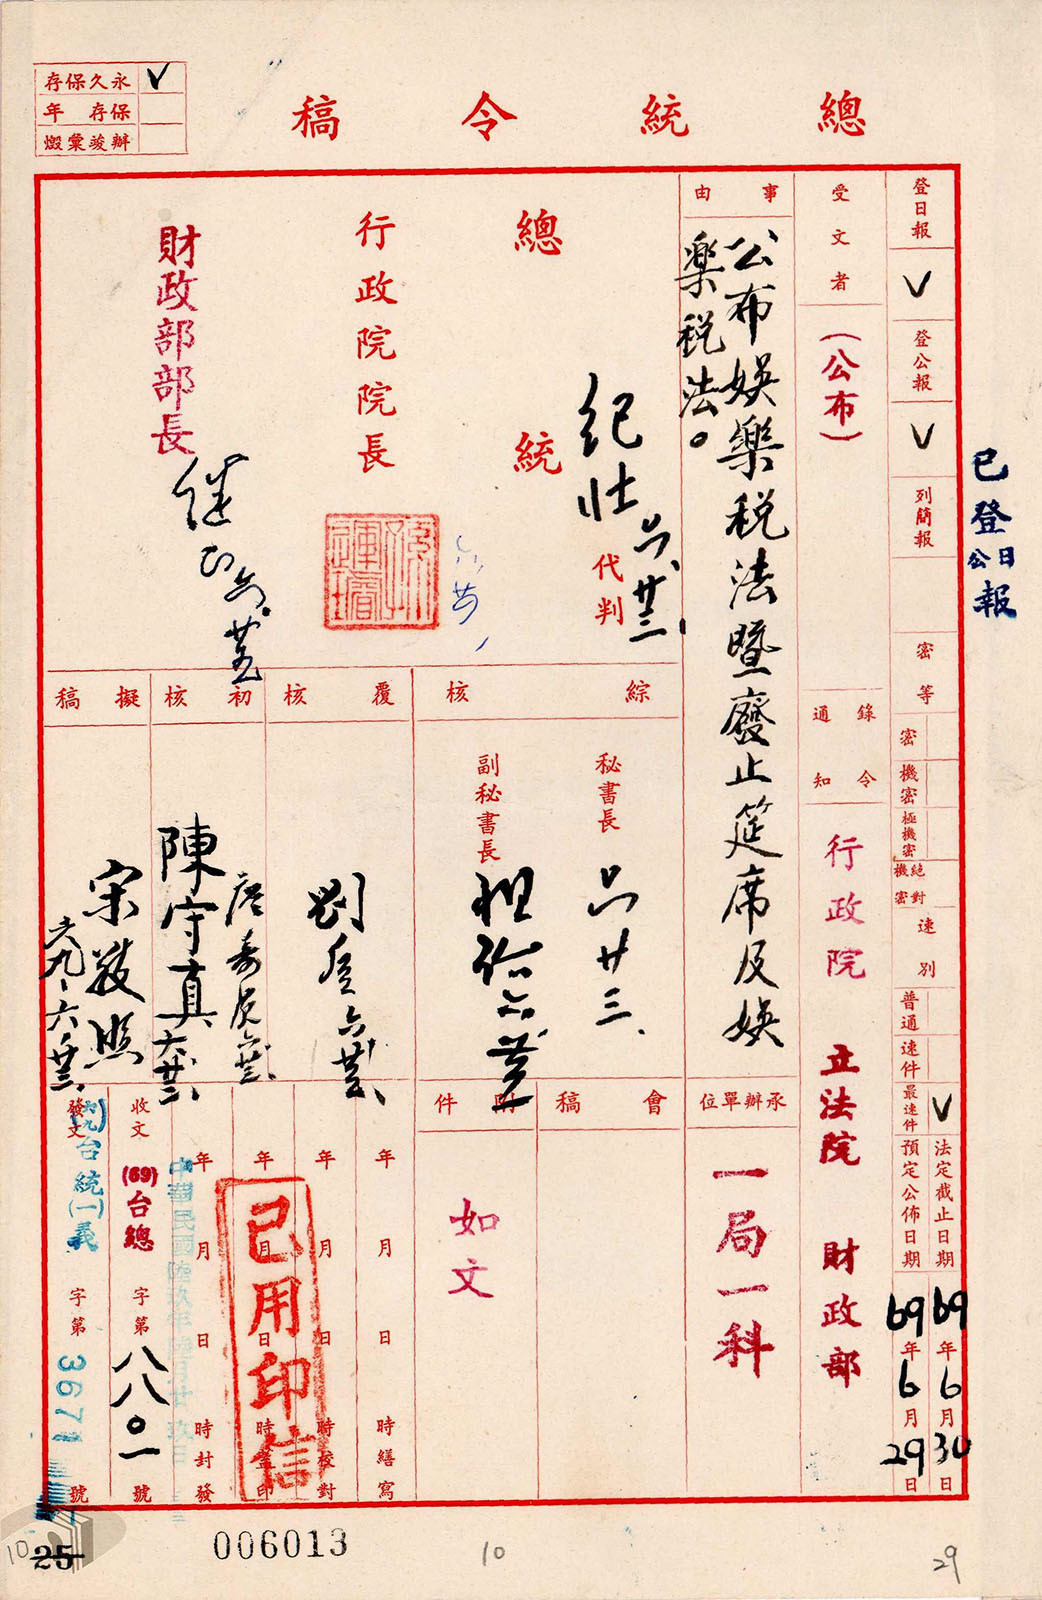 總統令稿
永久保存 V
保存 年
辦竣彙燬
登日報 V
登公報 V
列簡報
密等
密
機密
極機密
絕對機密
速別
普通
速件
最速件 V
法定截止日期 69年6月30日
預定公佈日期 69年6月29日
已登公日報
受文者
(公布)
錄令通知
行政院 立法院 財政部
事由
公布娛樂稅法暨廢止筵席及娛
樂稅法。
總統
紀壯 六、廿三、
代判
行政院院長
財政部部長
綜核
秘書長
廿三、
副秘書長
覆核
初核
陳守真
擬稿
六九、六、廿三、
承辦單位
一局一科
會稿
附件
如文
年月日時繕寫
年月日時校對
年月日時蓋印
年月日時封發
已用印信
中華民國陸玖年陸月廿玖日
收文 (69)台總 字第 八八〇一 號
發文 (六九)台統(一)義 字第 3671 號
25
10
006013
10
29